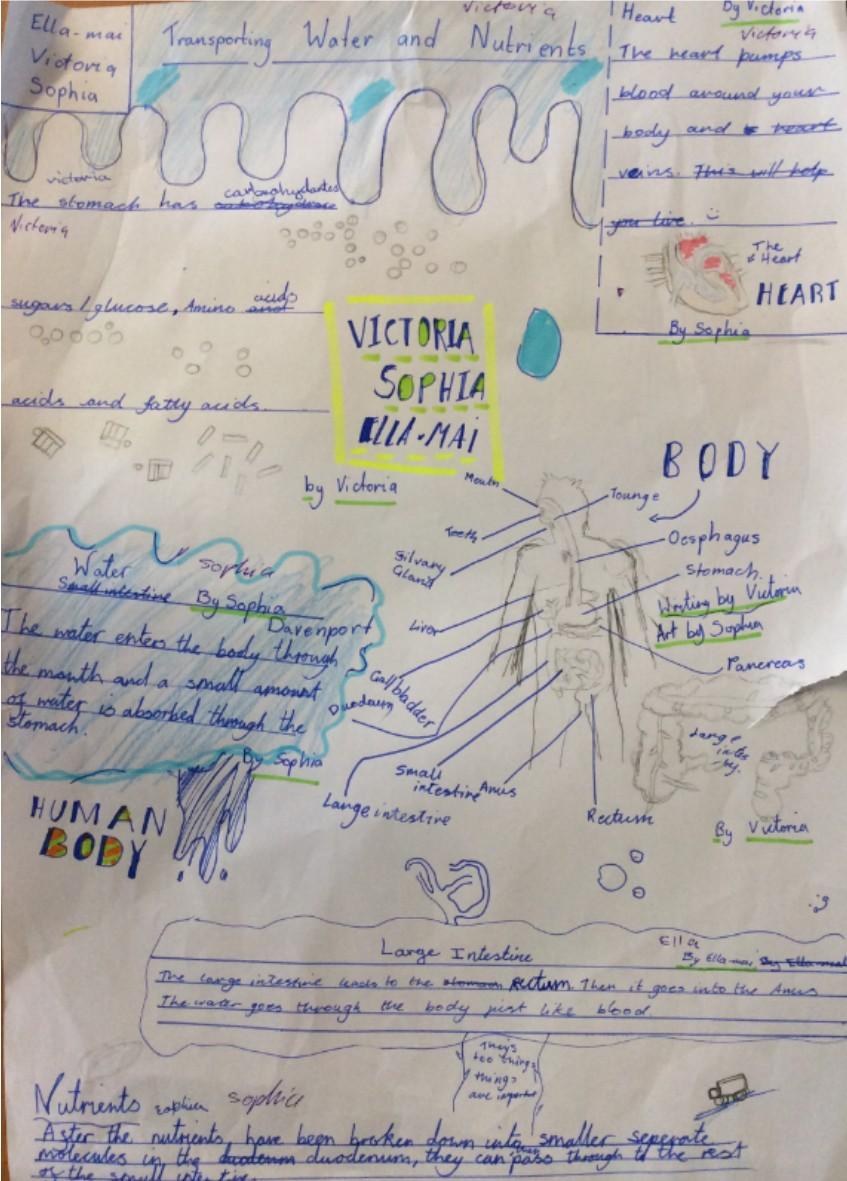 Ella-mai
Victoria
Sophia
Victoria
Transporting Water and Nutrients
Heart By Victoria
Victoria
The heart pumps
blood around your
body and heart
veins. This will help
you live.
The
Heart
HEART
By Sophia
victoria
carbohydantes
The stomach has
Victoria
sugars/glucose, Amino acids
and
acids and fatty acids.
by Victoria
VICTORIA
SOPHIA
ELLA-MAi
BODY
Mouth
Tounge
Teeth
Oesphagus
Silvary
Gland
Stomach.
Writing by Victoria
Art by Sophia
Liver
Pancreas
Gallbladder
Duodenum
Small
intestine
Anus
Large intestine
Rectum
Large
By Victoria
Water sophia
Small intestine By Sophia
Davenport
The water enters the body through
the mouth and a small amount
of water is absorbed through the
stomach.
By Sophia
HUMAN
BODY
Large Intestine
Ella
By Ella-mai By Ella-mai
The large intestine leads to the stomach Rectum. Then it goes into the Anus
The water goes through the body just like blood.
Theys
too things
things
are important
Nutrients sophia sophia
After the nutrients, have been broken down into smaller seperate
molecules in the duodenum duodenum, they can then pass through to the rest
of the small intestine